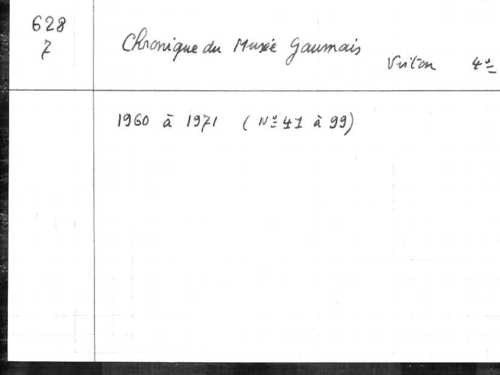 628
7
Chronique du Musée Gaumais
Virton 4º
1960 à 1971 (Nº 41 à 99)